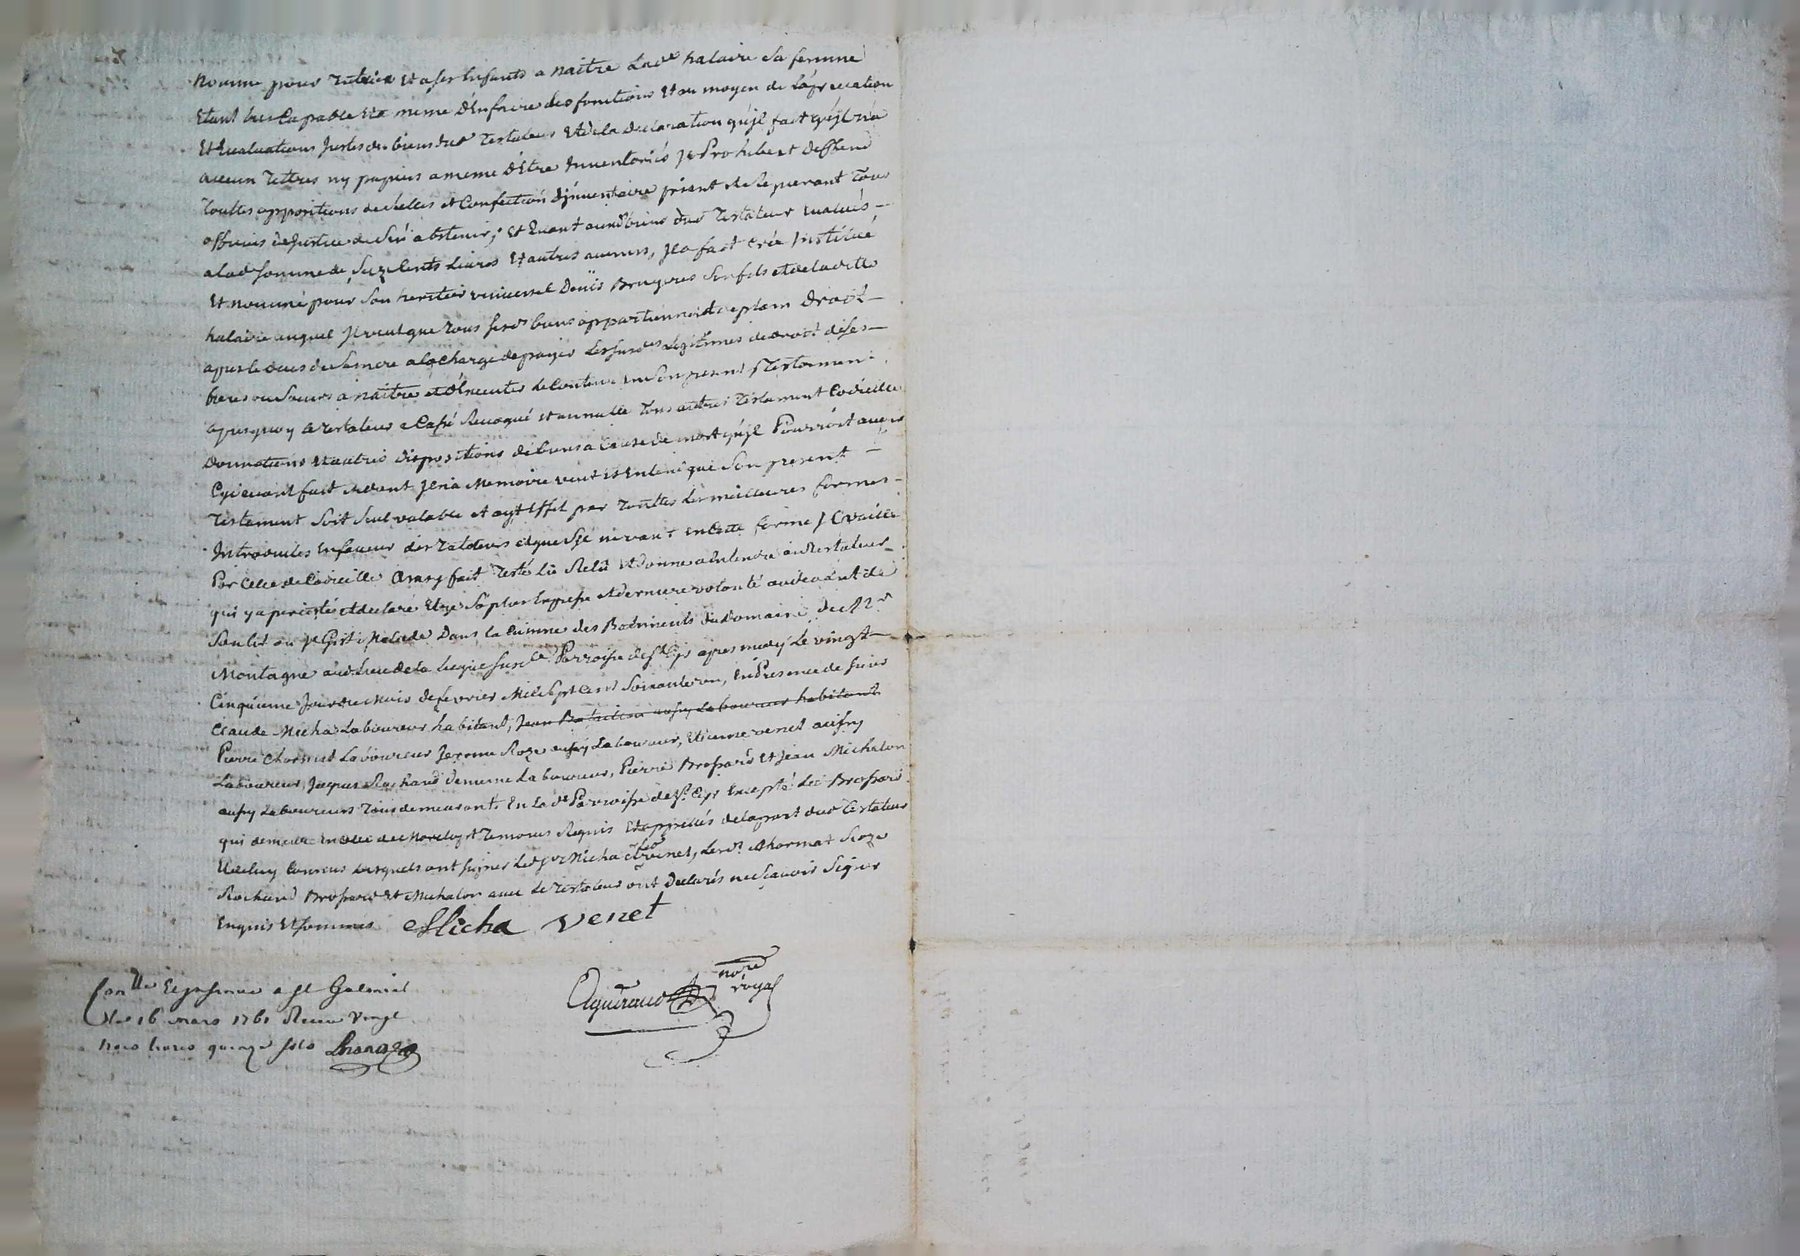 nomme pour tutrice et a ses Enfants a naitre lad.e halaire sa femme
Etant tres Capable et a meme d'En faire les fonctions Et au moyen de l'apreciation
Et Evaluations Justes des biens dud testateur Et de la declaration qu'jl fait qu'jl n'a
aucun Tittres ny papiers a meme d'Etre Inventoriés Jl Prohibe et deffend
touttes appositions de scelles et Confection d'jnventaire priant et requerant tous
officiers de Justice de s'en abstenir; Et Quant auxd. biens dud Testateur Evalués
a lad. somme de six Cents livres Et autres avenirs, Jl a fait Crée Institué
Et nommé pour son heritier universel Denis Brugeres son fils et de laditte
halaire auquel Jl veut que tous sesd. biens appartiennent de plain Droit
apres le deces de sa mere a la charge de payer les susd.es Legitimes de droit a ses
freres ou Soeurs a naitre et d'Executer le Contenu En son present Testament
apres quoy le testateur a Cassé Revoqué et annullé tous autres Testament Codicille
donnations Et autres dispositions de biens a Cause de mort qu'jl Pourroit avoir
Cy devant fait dont Jl n'a Memoire veut et Entend que son present
Testament soit seul valable et ayt Effet par touttes les meilleures formes
Introduites En faveur des Testateurs et que s'jl ne vaut en Cette forme Jl vaille
Par Celle de Codicille Ainsy fait Testé lû Relû Et donné a Entendre au Testateur
qui y a persisté et declaré Etre sa plus Expresse et derniere volonté au devant de
son lit ou Jl Gist Malade Dans la Cuisine des Batiments du domaine de M.r
Montagne au lieu de la susd.e Parroisse de St Cyr apres midy le vingt
Cinquieme Jour du Mois de fevrier Mil Sept Cent Soixante un, En Presence de sieur
Claude Micha Laboureur habitant, Jean aussy Laboureur habitant
Pierre Laboureur Jerome Roze aussy Laboureur, Etienne venet aussy
Laboureur, Jacques Rochand de meme Laboureur, Pierre Brossard Et Jean Michalon
aussy Laboureurs tous demeurants En lad.e Parroisse de St Cyr Excepté led Brossard
qui demeure En Celle de temoins Requis Et appellés de la part dud testateur
Et de luy Connus lesquels ont signer led. sr. Micha et venet, lesd. Roze
Rochand Brossard Et Michalon avec le testateur ont Declarés ne sçavoir signer
Enquis Et sommes Micha venet
Con.lle Et a St Galmier
le 16 mars 1761 Reçu vingt
trois livres quinze sols
no.re
royal